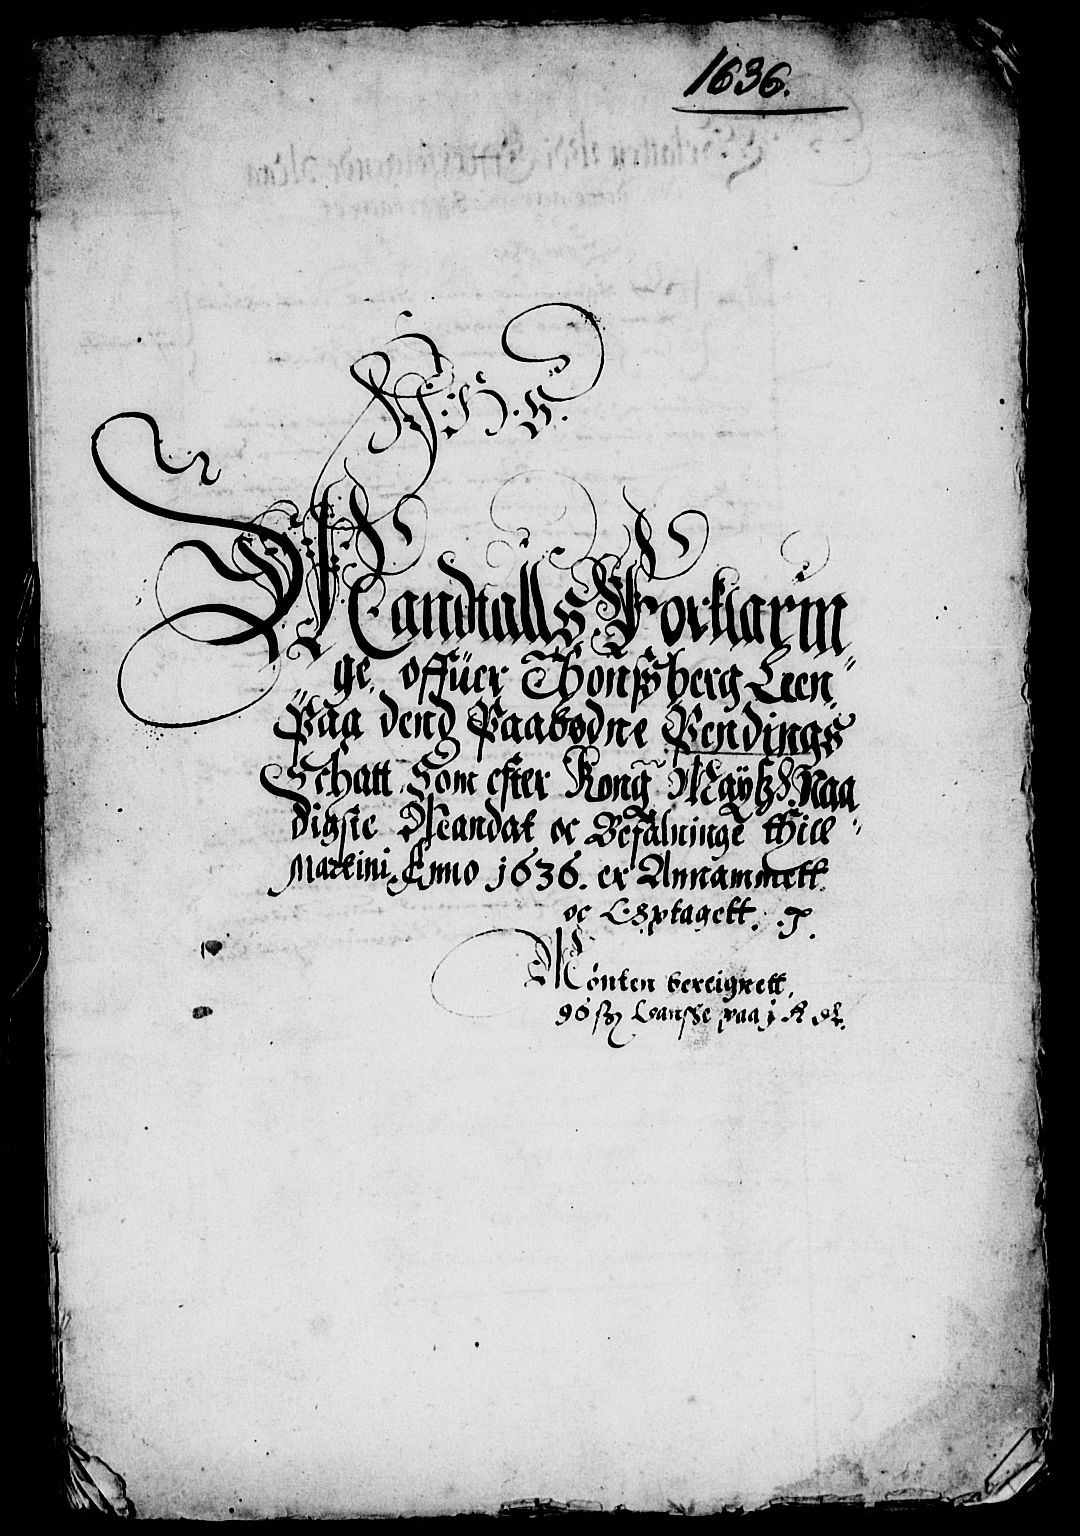 1636.
J. H. S.
Mandtalls Forklarin
ge. offuer Thonßberg Leen
Paa dend Paabodne Pendings
Schatt, Som efter Kong Maÿtz Naa
digste Mandat oc Befalninge thill
Martini Anno 1636. er Annammett
oc Optagett.
Mönten bereignett.
96 ß Danske paa j R dr.